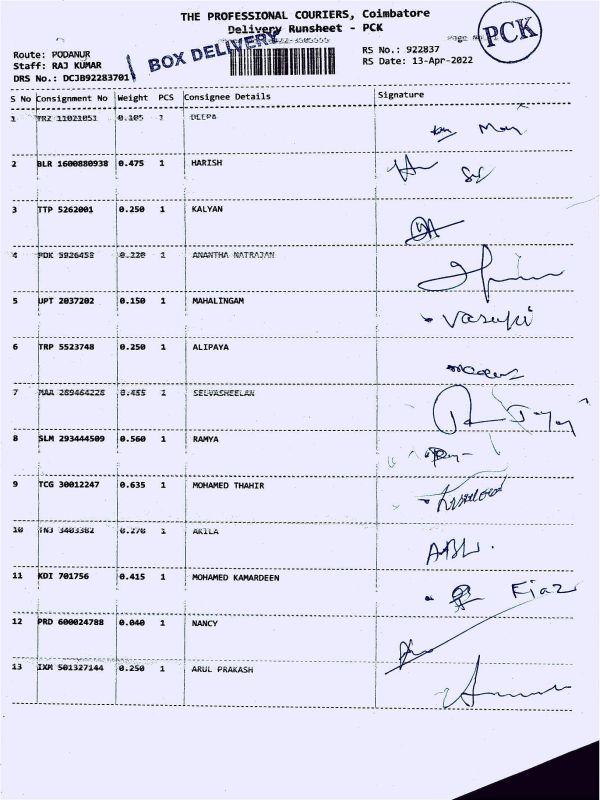 THE PROFESSIONAL COURIERS, Coimbatore
Delivery Runsheet - PCK
BOX DELIVERY
PCK
Page No.
Route: PODANUR
Staff: RAJ KUMAR
DRS No.: DCJB92283701
RS No.: 922837
RS Date: 13-Apr-2022
S No Consignment No Weight PCS Consignee Details Signature
1 TRZ 11021051 0.105 1 DEEPA
2 BLR 1600880938 0.475 1 HARISH
3 TTP 5262001 0.250 1 KALYAN
4 PDK 5926458 0.220 1 ANANTHA NATRAJAN
5 UPT 2037202 0.150 1 MAHALINGAM Vasuki
6 TRP 5523748 0.250 1 ALIPAYA
7 MAA 289464228 0.455 1 SELVASHEELAN
8 SLM 293444509 0.560 1 RAMYA
9 TCG 30012247 0.635 1 MOHAMED THAHIR
10 TNJ 3403382 0.270 1 AKILA
11 KDI 701756 0.415 1 MOHAMED KAMARDEEN Ejaz
12 PRD 600024788 0.040 1 NANCY
13 IXM 501327144 0.250 1 ARUL PRAKASH